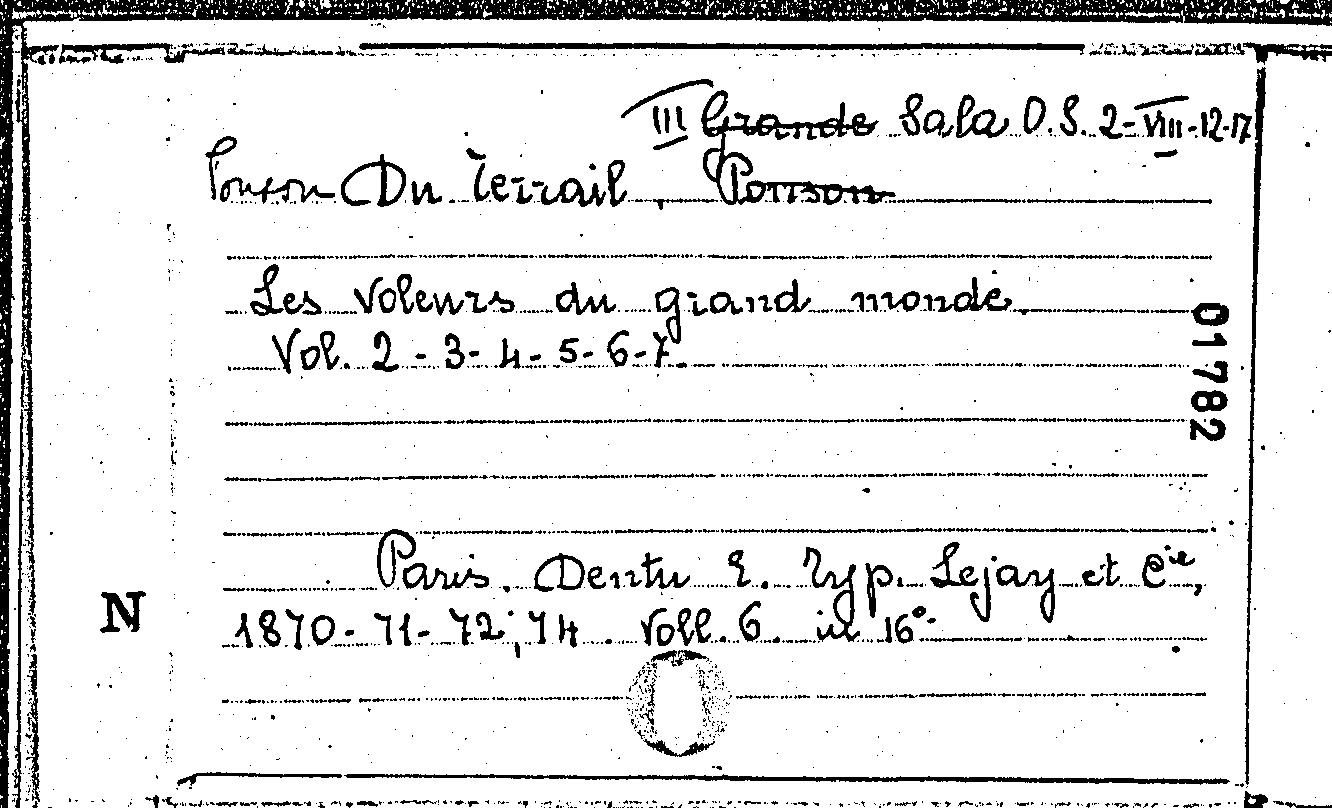 III Grande Sala O.S. 2-VIII-12-17
Ponson Du Terrail, Ponson
Les Voleurs du grand monde.
Vol. 2-3-4-5-6-7.
01782
Paris. Dentu E. Typ. Lejay et Cie,
N
1870-71-72;74. Voll. 6. in 16°.